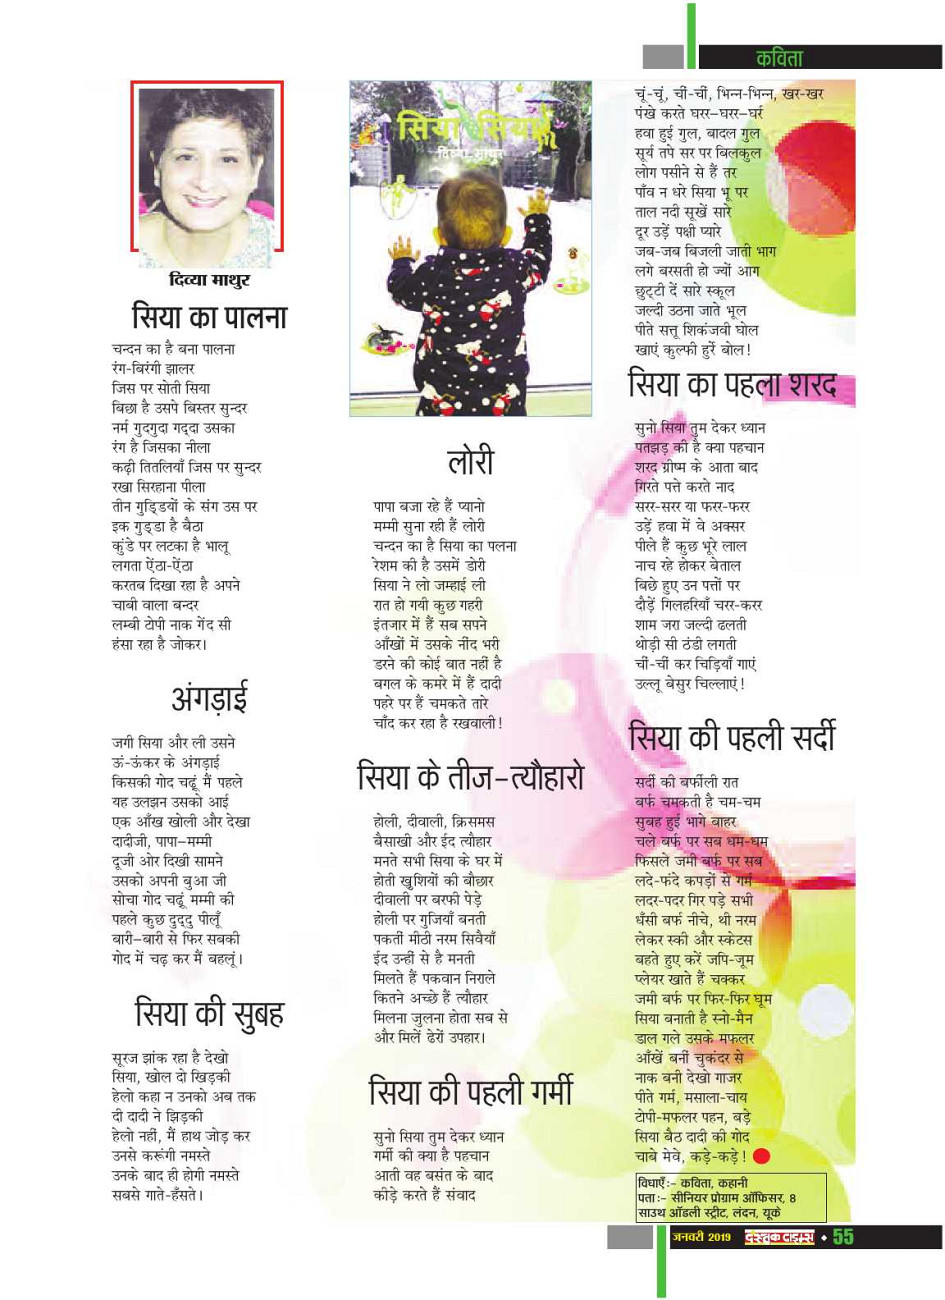 कविता
दिव्या माथुर
सिया का पालना
चन्दन का है बना पालना
रंग-बिरंगी झालर
जिस पर सोती सिया
बिछा है उसपे बिस्तर सुन्दर
नर्म गुदगुदा गद्‌दा उसका
रंग है जिसका नीला
कढ़ी तितलियाँ जिस पर सुन्दर
रखा सिरहाना पीला
तीन गुड्डियों के संग उस पर
इक गुड्‌डा है बैठा
कुंडे पर लटका है भालू
लगता ऐंठा-ऐंठा
करतब दिखा रहा है अपने
चाबी वाला बन्दर
लम्बी टोपी नाक गेंद सी
हंसा रहा है जोकर।
अंगड़ाई
जगी सिया और ली उसने
ऊं-ऊंकर के अंगड़ाई
किसकी गोद चढ़ूं मैं पहले
यह उलझन उसको आई
एक आँख खोली और देखा
दादीजी, पापा–मम्मी
दूजी ओर दिखी सामने
उसको अपनी बुआ जी
सोचा गोद चढ़ूं मम्मी की
पहले कुछ दुद्‌दु पीलूँ
बारी–बारी से फिर सबकी
गोद में चढ़ कर मैं बहलूं।
सिया की सुबह
सूरज झांक रहा है देखो
सिया, खोल दो खिड़की
हेलो कहा न उनको अब तक
दी दादी ने झिड़की
हेलो नहीं, मैं हाथ जोड़ कर
उनसे करूंगी नमस्ते
उनके बाद ही होगी नमस्ते
सबसे गाते-हँसते।
सिया सिया
दिव्या माथुर
लोरी
पापा बजा रहे हैं प्यानो
मम्मी सुना रही हैं लोरी
चन्दन का है सिया का पलना
रेशम की है उसमें डोरी
सिया ने लो जम्हाई ली
रात हो गयी कुछ गहरी
इंतजार में हैं सब सपने
आँखों में उसके नींद भरी
डरने की कोई बात नहीं है
बगल के कमरे में हैं दादी
पहरे पर हैं चमकते तारे
चाँद कर रहा है रखवाली!
सिया के तीज–त्यौहारो
होली, दीवाली, क्रिसमस
बैसाखी और ईद त्यौहार
मनते सभी सिया के घर में
होती खुशियों की बौछार
दीवाली पर बरफी पेड़े
होली पर गुजियाँ बनती
पकतीं मीठी नरम सिवैयाँ
ईद उन्हीं से है मनती
मिलते हैं पकवान निराले
कितने अच्छे हैं त्यौहार
मिलना जुलना होता सब से
और मिलें ढेरों उपहार।
सिया की पहली गर्मी
सुनो सिया तुम देकर ध्यान
गर्मी की क्या है पहचान
आती वह बसंत के बाद
कीड़े करते हैं संवाद
चूं-चूं, चीं-चीं, भिन्न-भिन्न, खर-खर
पंखे करते घरर–घरर–घर्र
हवा हुई गुल, बादल गुल
सूर्य तपे सर पर बिलकुल
लोग पसीने से हैं तर
पाँव न धरे सिया भू पर
ताल नदी सूखें सारे
दूर उड़ें पक्षी प्यारे
जब-जब बिजली जाती भाग
लगे बरसती हो ज्यों आग
छुट्‌टी दें सारे स्कूल
जल्दी उठना जाते भूल
पीते सत्तू शिकंजवी घोल
खाएं कुल्फी हुर्रे बोल!
सिया का पहला शरद
सुनो सिया तुम देकर ध्यान
पतझड़ की है क्या पहचान
शरद ग्रीष्म के आता बाद
गिरते पत्ते करते नाद
सरर-सरर या फरर-फरर
उड़ें हवा में वे अक्सर
पीले हैं कुछ भूरे लाल
नाच रहे होकर बेताल
बिछे हुए उन पत्तों पर
दौड़ें गिलहरियाँ चरर-करर
शाम जरा जल्दी ढलती
थोड़ी सी ठंडी लगती
चीं-चीं कर चिड़ियाँ गाएं
उल्लू बेसुर चिल्लाएं!
सिया की पहली सर्दी
सर्दी की बर्फीली रात
बर्फ चमकती है चम-चम
सुबह हुई भागे बाहर
चले बर्फ पर सब धम-धम
फिसले जमी बर्फ पर सब
लदे-फंदे कपड़ों से गर्म
लदर-पदर गिर पड़े सभी
धँसी बर्फ नीचे, थी नरम
लेकर स्की और स्केटस
बहते हुए करें जपि-जूम
प्लेयर खाते हैं चक्कर
जमी बर्फ पर फिर-फिर घूम
सिया बनाती है स्नो-मैन
डाल गले उसके मफलर
आँखें बनीं चुकंदर से
नाक बनी देखो गाजर
पीते गर्म, मसाला-चाय
टोपी-मफलर पहन, बड़े
सिया बैठ दादी की गोद
चाबे मेवे, कड़े-कड़े!
विधाएँ:– कविता, कहानी
पताः– सीनियर प्रोग्राम ऑफिसर, 8
साउथ ऑडली स्ट्रीट, लंदन, यूके
जनवरी 2019 दस्तक टाइम्स 55